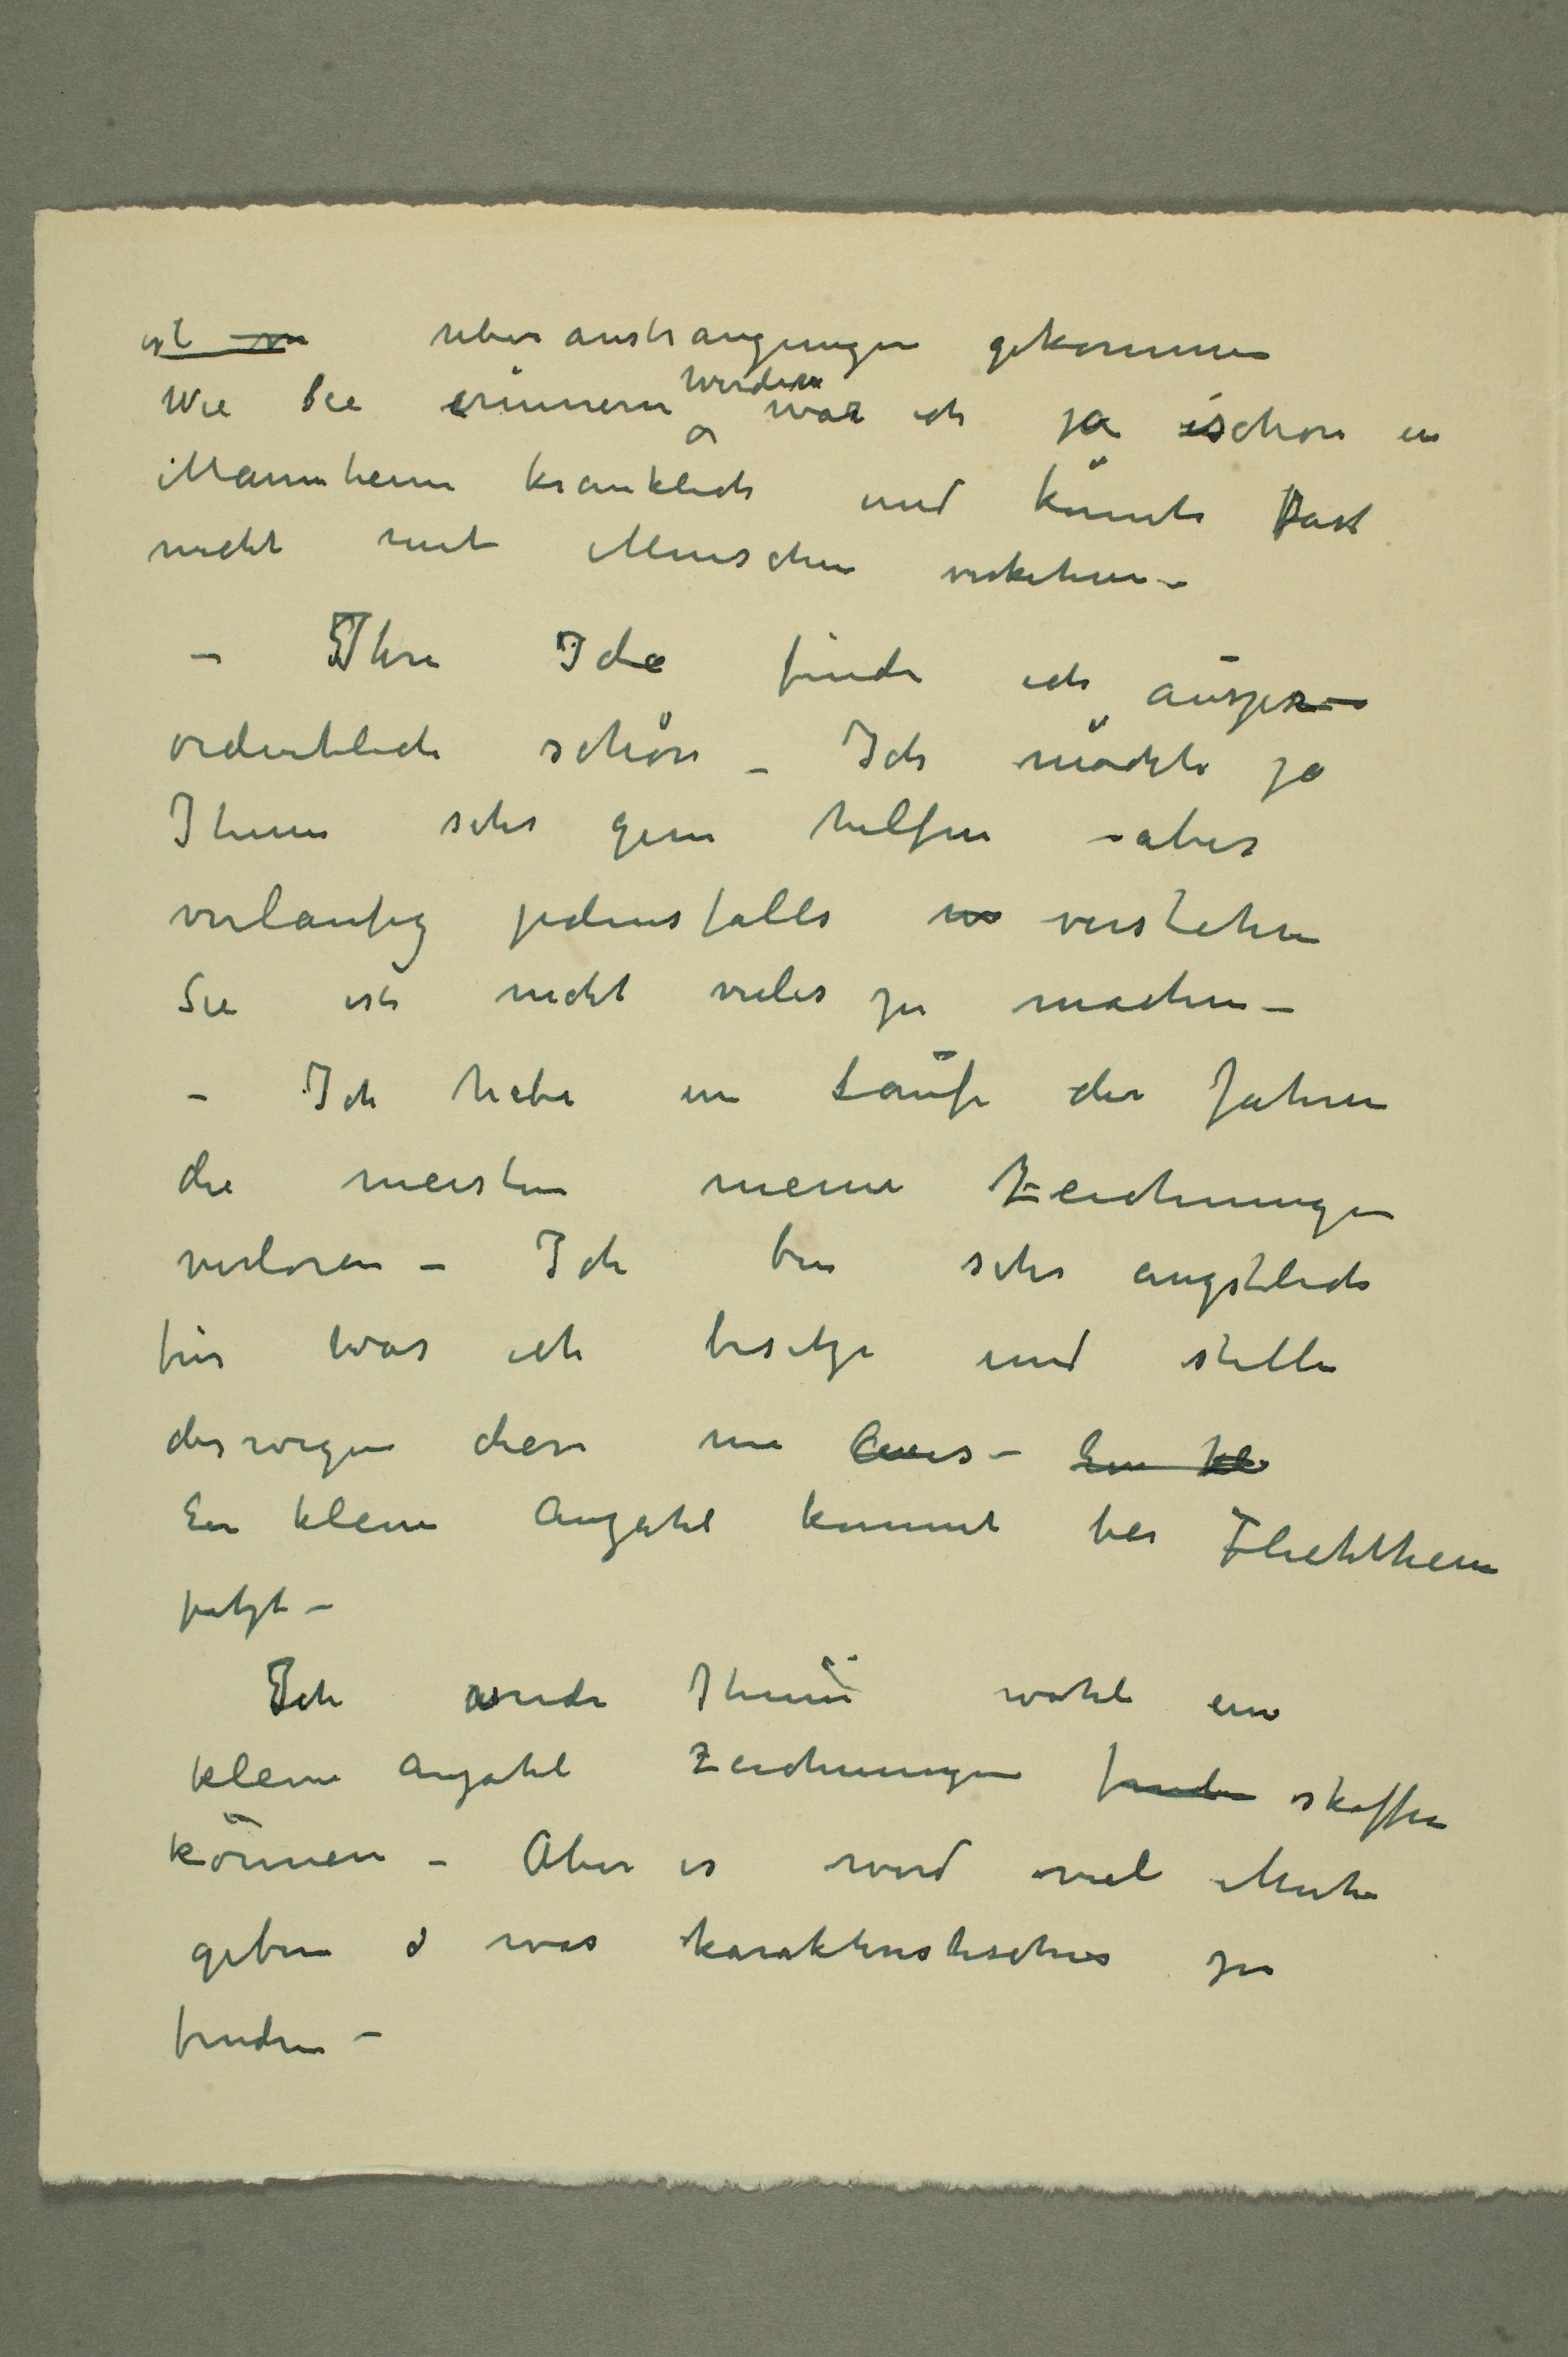 ist uberanstrangungen gekommen
Wie Sie erinnern werden war ich ja schon in
Mannheim kranklich und könnte fast
nicht mit Menschen verkehren –
– Ihre Ide finde ich ausser–
ordentlich schön – Ich möchte ja
Ihnen sehr gern helfen – aber
vorlaufig jedensfalls verstehen
Sie ist nicht vieles zu machen –
– Ich habe im Laufe der Jahren
die meisten meine Zeichnungen
verloren – Ich bin sehr angstlich
für was ich besitze und stelle
deswegen diese nie aus – Ein kl
Ein kleine Anzahl kommt bei Flechtheim
jetzt –
Ich werde Ihnen wohl ein
kleine Anzahl Zeichnungen finden skaffen
können – Aber es wird viel Muhe
geben was karakteristisches zu
finden –